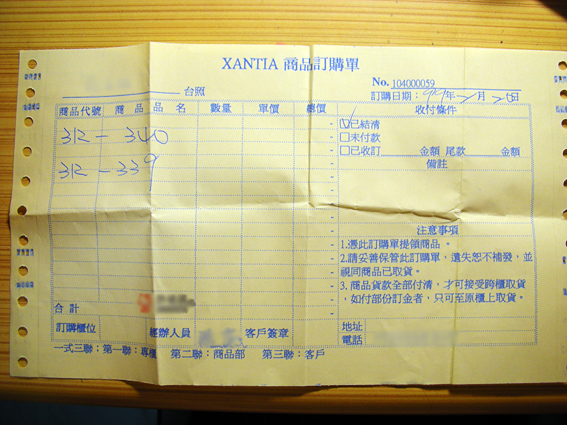 XANTIA 商品訂購單
No. 104000059
台照
訂購日期: 99年 月 日
商品代號 商品品名 數量 單價 總價 收付條件
312-340
312-339
☑已結清
□未付款
□已收訂 金額 尾款 金額
備註
注意事項
1.憑此訂購單提領商品。
2.請妥善保管此訂購單，遺失恕不補發，並
視同商品已取貨。
3. 商品貨款全部付清，才可接受跨櫃取貨
，如付部份訂金者，只可至原櫃上取貨。
合計
訂購櫃位 經辦人員 客戶簽章 地址
電話
一式三聯：第一聯：專櫃 第二聯：商品部 第三聯：客戶